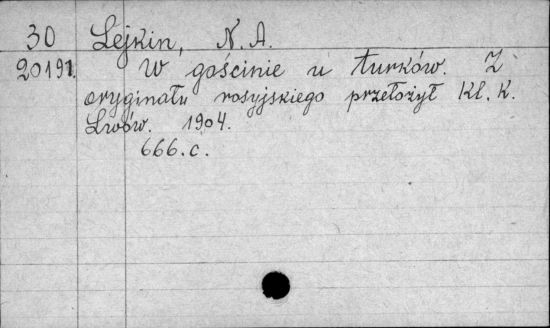 30 Lejkin, N. A.
20191. W gościnie u turków. Z
oryginału rosyjskiego przełożył Kl. K.
Lwów. 1904.
666. c.